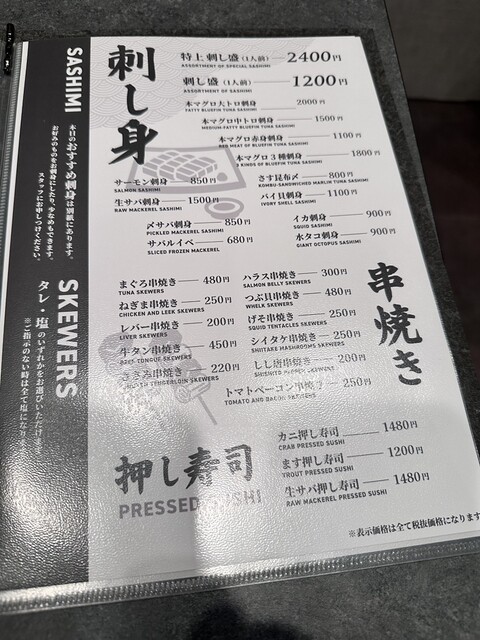 刺し身
特上刺し盛(1人前) 2400円
ASSORTMENT OF SPECIAL SASHIMI
刺し盛(1人前) 1200円
ASSORTMENT OF SASHIMI
本マグロ大トロ刺身 2000円
FATTY BLUEFIN TUNA SASHIMI
本マグロ中トロ刺身 1500円
MEDIUM-FATTY BLUEFIN TUNA SASHIMI
本マグロ赤身刺身 1100円
RED MEAT OF BLUEFIN TUNA SASHIMI
本マグロ3種刺身 1800円
3 KINDS OF BLUEFIN TUNA SASHIMI
サーモン刺身 850円
SALMON SASHIMI
さす昆布〆 800円
KOMBU-SANDWICHED MARLIN TUNA SASHIMI
生サバ刺身 1500円
RAW MACKEREL SASHIMI
バイ貝刺身 1100円
IVORY SHELL SASHIMI
〆サバ刺身 850円
PICKLED MACKEREL SASHIMI
イカ刺身 900円
SQUID SASHIMI
サバルイベ 680円
SLICED FROZEN MACKEREL
水タコ刺身 900円
GIANT OCTOPUS SASHIMI
SASHIMI
本日のおすすめ刺身は別紙にあります。
お好みのものをお刺身にしたり、少なめもできます。
スタッフにお申しつけください。
串焼き
まぐろ串焼き 480円
TUNA SKEWERS
ハラス串焼き 300円
SALMON BELLY SKEWERS
ねぎま串焼き 250円
CHICKEN AND LEEK SKEWERS
つぶ貝串焼き 480円
WHELK SKEWERS
レバー串焼き 200円
LIVER SKEWERS
げそ串焼き 250円
SQUID TENTACLES SKEWERS
牛タン串焼き 450円
BEEF TONGUE SKEWERS
シイタケ串焼き 250円
SHIITAKE MASHROOMS SKEWERS
ささみ串焼き 220円
TENDERLOIN SKEWERS
しし唐串焼き 200円
SHISHITO PEPPER SKEWERS
トマトベーコン串焼き 250円
TOMATO AND BACON SKEWERS
SKEWERS
タレ・塩のいずれかをお選びいただけます
※ご指示のない時は全て塩になり
押し寿司
PRESSED SUSHI
カニ押し寿司 1480円
CRAB PRESSED SUSHI
ます押し寿司 1200円
TROUT PRESSED SUSHI
生サバ押し寿司 1480円
RAW MACKEREL PRESSED SUSHI
※表示価格は全て税抜価格になります